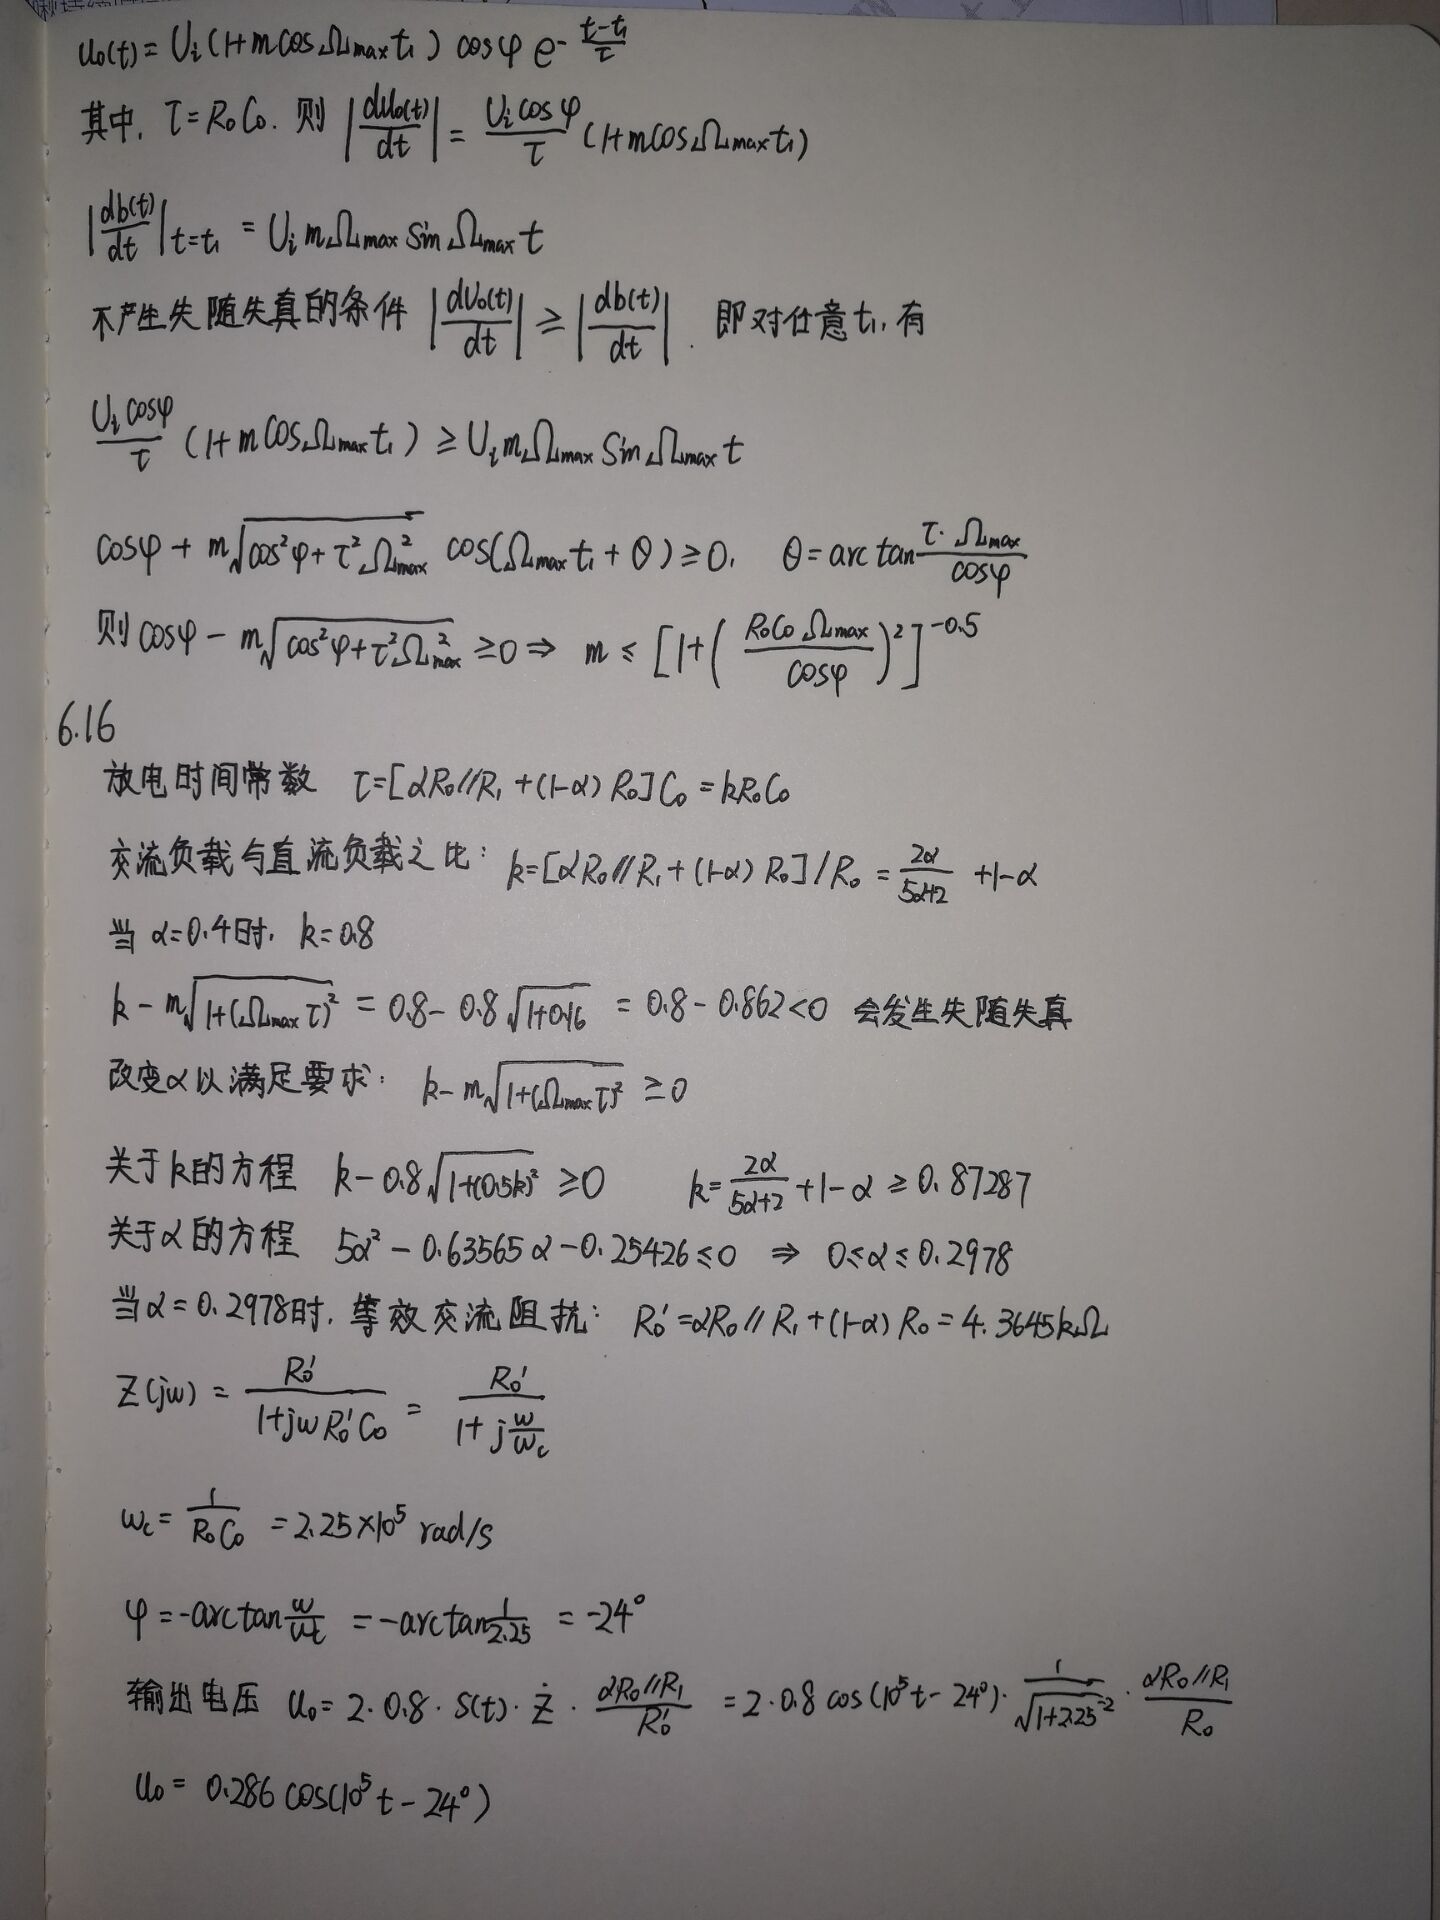 u₀(t) = Uᵢ(1+mcosΩmax t₁) cosφ e^{-(t-t₁)/τ}
其中, τ=R₀C₀. 则 |du₀(t)/dt| = (Uᵢcosφ/τ)(1+mcosΩmax t₁)
|db(t)/dt|t=t₁ = Uᵢ mΩmax sinΩmax t
不产生失随失真的条件 |dU₀(t)/dt| ≥ |db(t)/dt|. 即对任意t₁,有
(Uᵢcosφ/τ)(1+mcosΩmax t₁) ≥ UᵢmΩmax sinΩmax t
cosφ + m√(cos²φ+τ²Ω²max) cos(Ωmax t₁+θ) ≥ 0, θ=arctan(τ·Ωmax/cosφ)
则cosφ - m√(cos²φ+τ²Ω²max) ≥ 0 ⇒ m ≤ [1+(R₀C₀Ωmax/cosφ)²]^{-0.5}
6.16
放电时间常数 τ=[αR₀//R₁+(1-α)R₀]C₀=kR₀C₀
交流负载与直流负载之比: k=[αR₀//R₁+(1-α)R₀]/R₀ = 2α/(5α+2) +1-α
当 α=0.4时, k=0.8
k-m√(1+(Ωmax τ)²) = 0.8-0.8√(1+0.16) = 0.8-0.862<0 会发生失随失真
改变α以满足要求: k-m√(1+(Ωmax τ)²) ≥0
关于k的方程 k-0.8√(1+(0.5k)²) ≥0 k=2α/(5α+2)+1-α ≥0.87287
关于α的方程 5α²-0.63565α-0.25426≤0 ⇒ 0≤α≤0.2978
当α=0.2978时, 等效交流阻抗: R₀'=αR₀//R₁+(1-α)R₀=4.3645kΩ
Z(jw) = R₀'/(1+jwR₀'C₀) = R₀'/(1+j w/wc)
wc = 1/(R₀C₀) = 2.25×10⁵ rad/s
φ=-arctan w/wc = -arctan 1/2.25 = -24°
输出电压 u₀=2·0.8·S(t)·Ż·(αR₀//R₁)/R₀' = 2·0.8cos(10⁵t-24°)·1/√(1+2.25⁻²)·(αR₀//R₁)/R₀
u₀ = 0.286cos(10⁵t-24°)